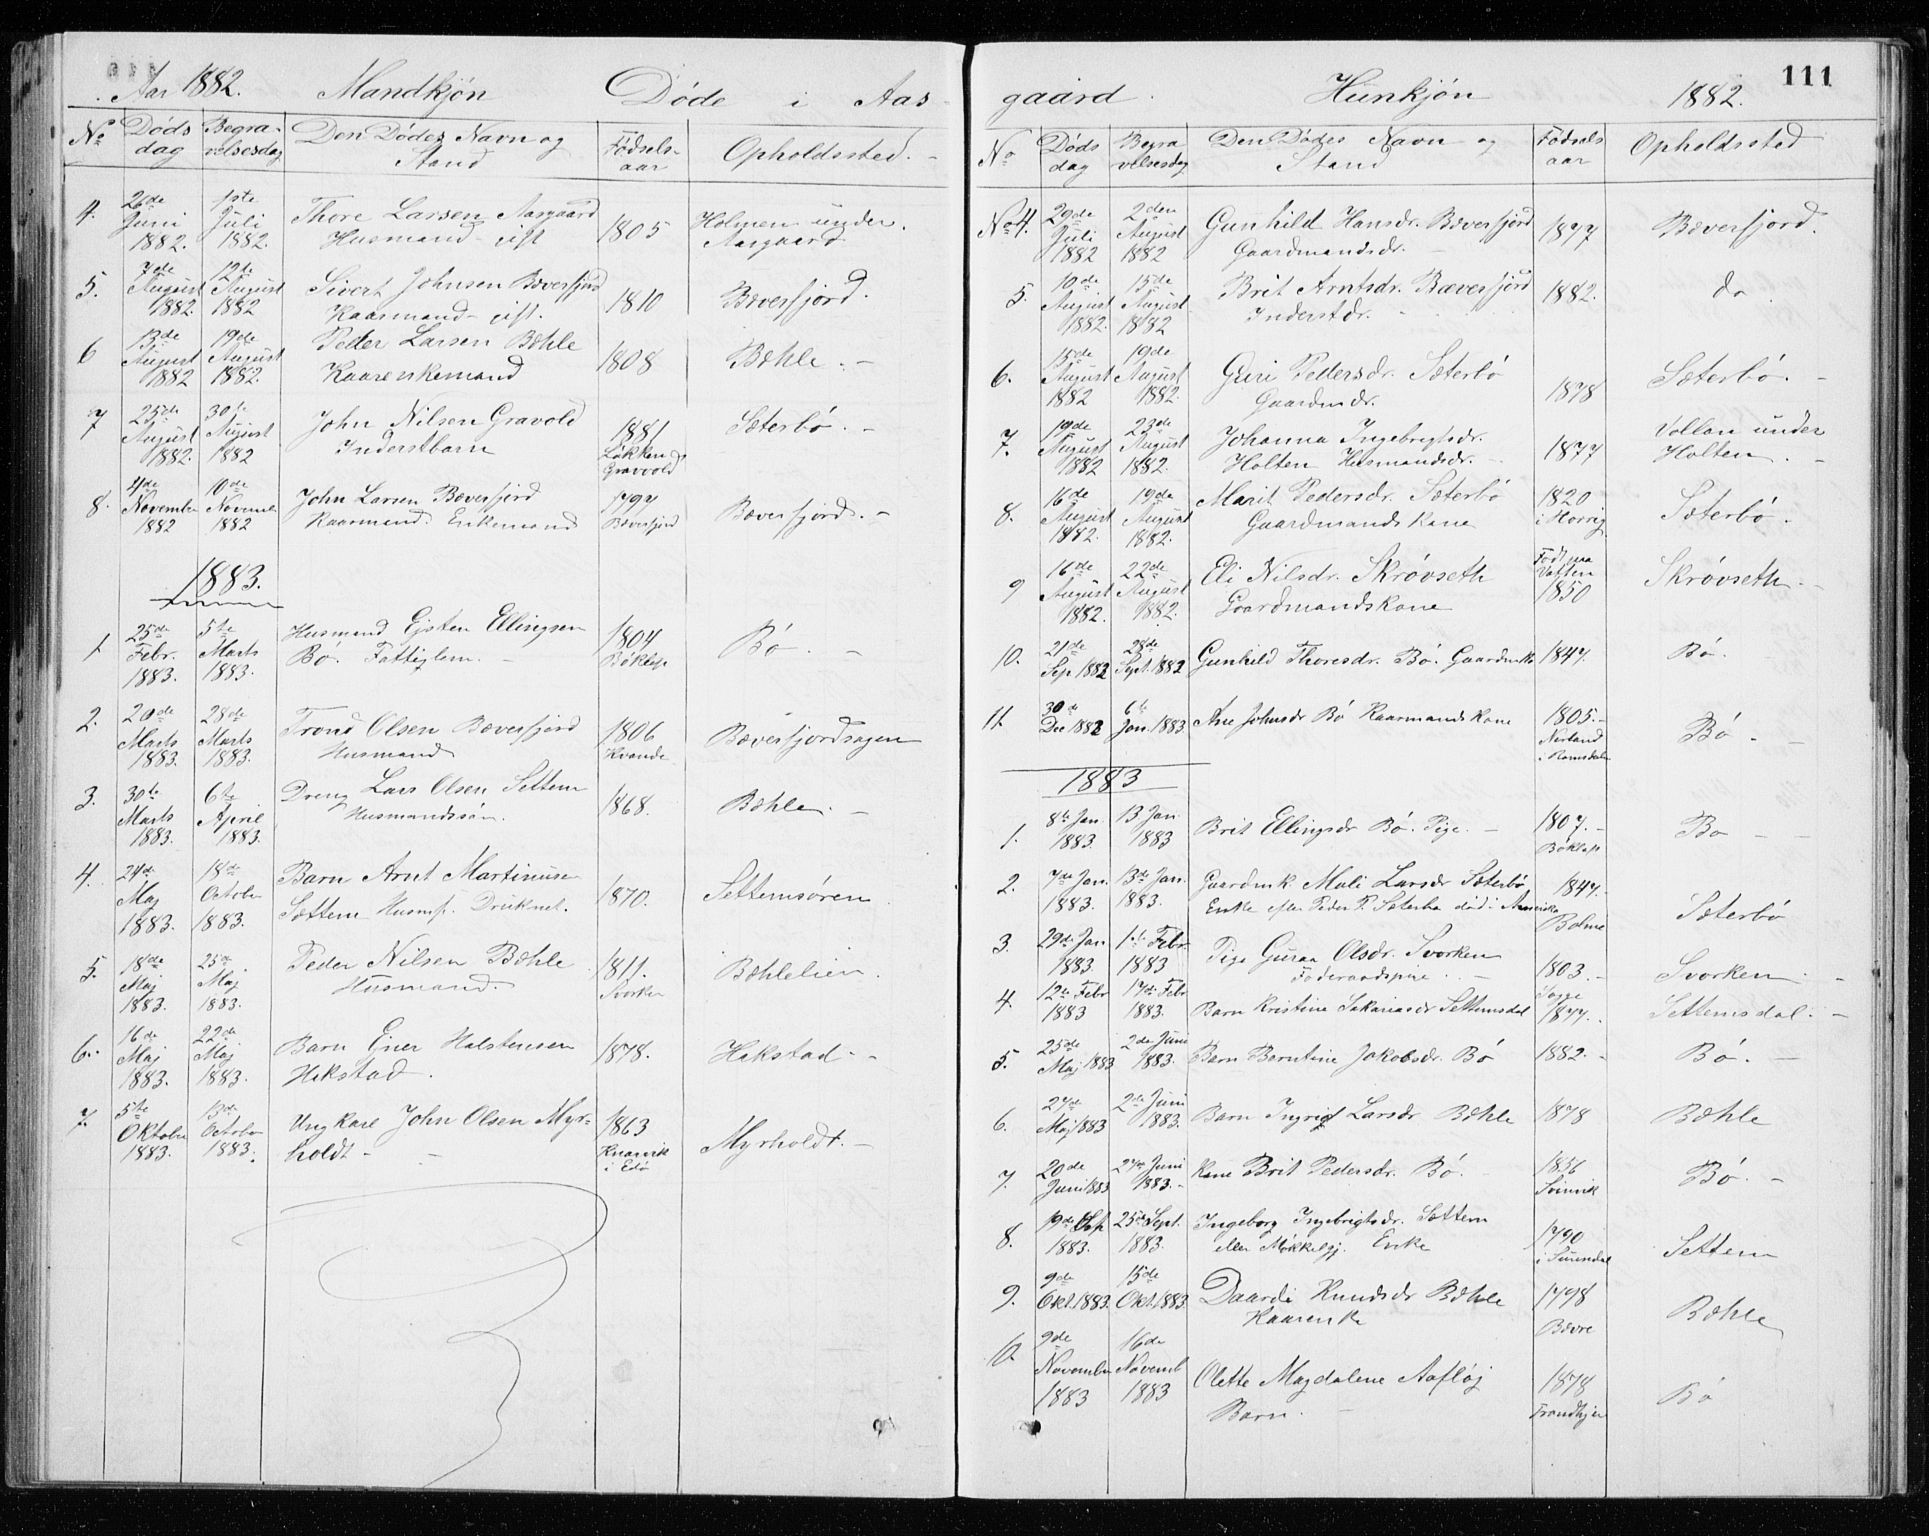 Aar 1882. Mandkjøn Døde i Aas-
No Døds dag Begravelsesdag Den Dødes Navn og Stand Fødselsaar Opholdssted.
4. 26de Juni 1882. 1ste Juli 1882. Thore Larsen Aasgaard Husmand gift 1805 Holmen under Aasgaard
5. 7de August 1882. 12te August 1882 Sivert Johnsen Bæverfjord Kaarmand gift. 1810 Bæverfjord.
6 13de August 1882 19de August 1882. Peder Larsen Bæhle Kaarenkemand 1808 Bæhle.
7 25de August 1882. 30te August 1882 John Nilsen Gravold Inderstbarn 1881 Løkken Gravvold Sæterbø.
8. 4de November 1882 10de November 1882 John Larsen Bæverfjord Kaarmand Enkemand 1797 Bæverfjord Bæverfjord.
1883.
1 25de Febr. 1883. 5te Marts 1883. Husmand Ejsten Ellingsen Bø. Fattiglem. 1804 Bøklep Bø.
2. 20de Marts 1883. 28de Marts 1883. Trond Olsen Bæverfjord Husmand 1806 Kvande Bæverfjordsagen
3. 30te Marts 1883. 6te April 1883. Dreng Lars Olsen Settem Husmandssøn. 1868. Bæhle.
4. 24de Maj 1883. 18de October 1883. Barn Arnt Martinusen Sættem Husmf. Druknet. 1870. Settemsøren
5. 18de Maj 1883. 25de Maj 1883. Peder Nilsen Bæhle Husmand. 1811. Svorken Bæhlelien.
6. 16de Maj 1883. 22de Maj 1883. Barn Einer Halstensen Hakstad. 1878. Hakstad.
7. 5te Oktober 1883. 13de October 1883. Ungkarl John Olsen Myrholdt 1863 Knarvik i Edø Myrholdt.
gaard. Kunkjøn 1882. 111
No Døds dag Begravelsesdag Den Dødes Navn og Stand Fødselsaar Opholdssted
No 4. 29de Juli 1882 2den August 1882 Gunhild Hansdr. Bæverfjord Gaardmandsdr. 1877 Bæverfjord.
5. 10de August 1882. 15de August 1882 Brit Arntsdr. Bæverfjord Inderstdr. 1882. do
6. 15de August 1882 19de August 1882. Guri Pedersdr. Sæterbø Gaardmdr. 1878 Sæterbø.
7. 19de August 1882 23de August 1882. Johanna Ingebrigtsdr. Holten Husmandsdr. 1877 Vollan under Holten.
8. 16de August 1882. 19de August 1882. Marit Pedersdr. Sæterbø Gaardmandskone 1820 i Horrig Sæterbø.
9 16de August 1882. 22de August 1882. Eli Nilsdr. Skrøvseth Gaardmandskone Født paa 1850 Skrøvseth.
10. 21de Sep 1882 28de Sept. 1882 Gunhild Thoresdr. Bø. Gaardmk 1847. Bø.
11 30de Dec 1882 6te Jan. 1883 Ane Johnsdr Bø Kaarmandskone 1805. i Romsdalen Bø.
1883
1. 8de Jan. 1883. 13 Jan 1883 Brit Ellingsdr Bø. Pige. 1807. Bøklep Bø
2. 7de Jan. 1883. 13de Jan. 1883. Gaardmk. Mali Larsdr Sæterbø Enke efter Peder P. Sæterbø død i Amerika 1847. Bolme Sæterbø
3. 29de Jan 1883. 1ste Febr. 1883 Pige Guraa Olsdr. Svorken Føderaadspige. 1803. Svorken
4. 12te Febr 1883 17de Febr 1883. Barn Kristine Sakariasdr Settemsdal 1877. Settemsdal.
5. 25de Maj 1883 2den Juni 1883. Barn Berntine Jakobsdr. Bø 1882. Bø.
6. 27de Maj 1883 2den Juni 1883. Barn Ingrid Larsdr Bæhle 1878 Bæhle
7. 20de Juni 1883 27de Juni 1883. Kone Brit Pedersdr. Bø. 1856 Svinvik Bø.
8. 19de Sep 1883. 25de Sept. 1883. Ingeborg Ingebrigtsdr. Sættem eller Mikkelgj. Enke 1790 i Surendal Settem
9. 9de Okt. 1883. 15de Okt. 1883. Daardi Knudsdr Bæhle Kaarenke 1798 Bævre Bæhle
10. 9de November 1883 16de Novemb 1883 Olette Magdalene Aafløj Barn. 1878 Trondhjem Bø